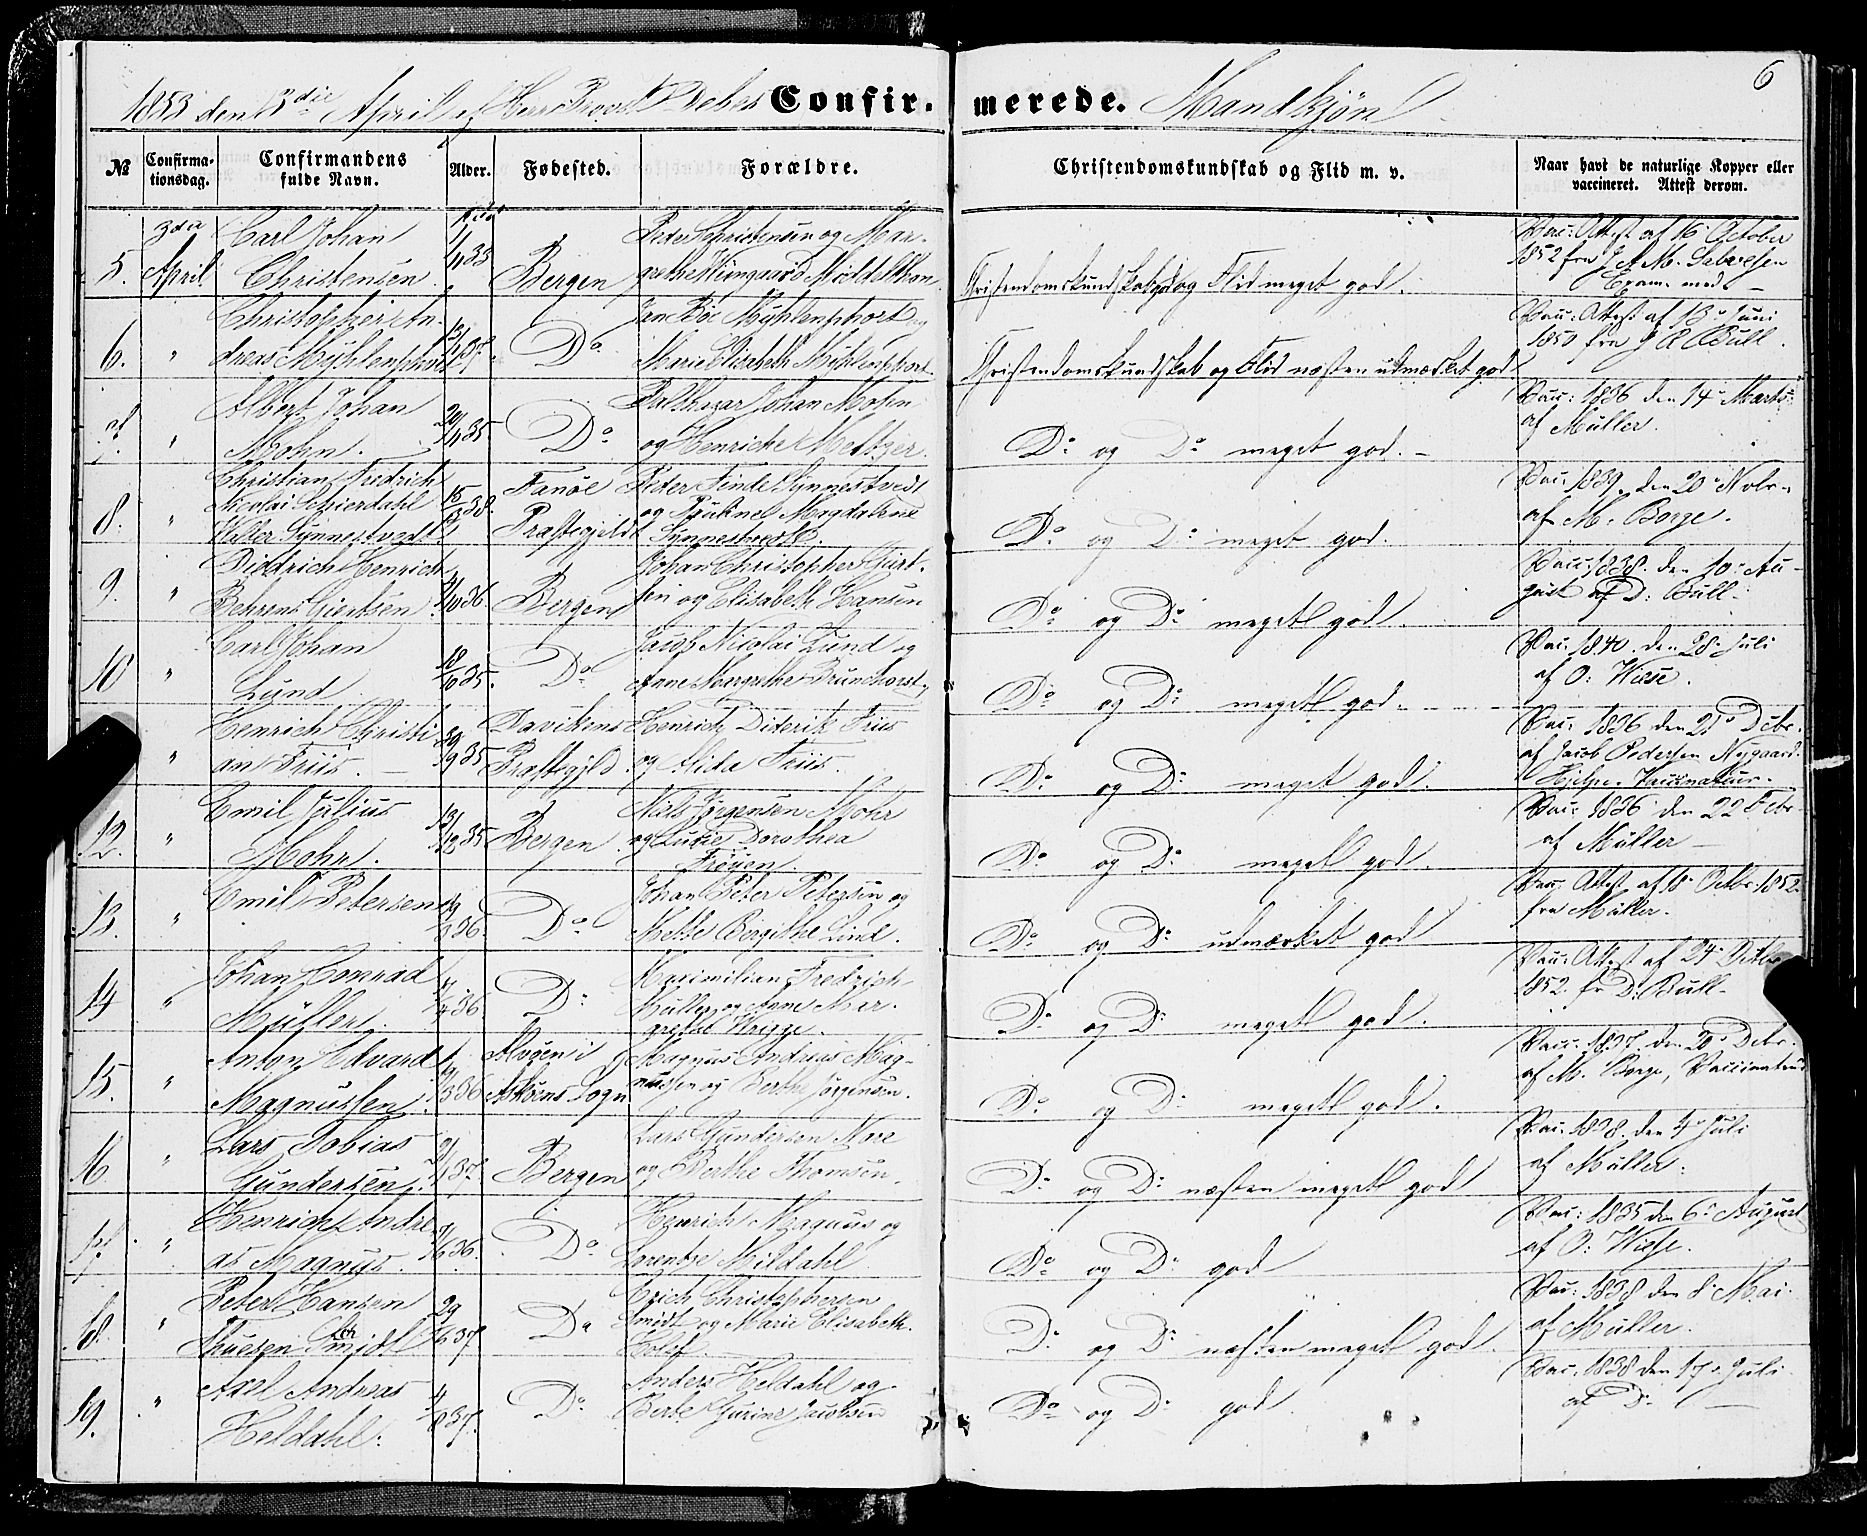 1853 den 3die April af Herr Provst Confir- merede. Mandkjøn 6
№ Confirma- tionsdag. Confirmandens fulde Navn. Alder. Fødested. Forældre. Christendomskundskab og Flid m. v. Naar havt de naturlige Kopper eller vaccineret. Attest derom.
5. 3die April Carl Johan Christensen 33 Bergen Peder Christensen og Mar- grethe Christendomskundskab og Flid meget god. Vac: Attest af 16 October 1852 fra
6. " Christopher An- dreas Myhlenphort 37. Do Jan Bøe Myhlenphort og Marie Elisabeth Myhlenphort Christendomskundskab og Flid næsten udmærket god Vacc: Attest af 13 Juni 1850 fra Bull.
7. " Albert Johan Mohn. 20/11 35 Do Balthazar Johan Mohn og Henriche Meltzer. Do og Do meget god. Vacc: 1836 den 14 Marts af Müller.
8. " Christian Fredrich Nicolai Schierdahl Welter Synnestvedt 38. Fanöe Præstegjeldt Peder Finde Synnestvedt og Magdalene Synnestvedt. Do og Do meget god. Vac: 1839. den 20 Novbr. af M. Borge.
9. " Diddrich Henrich Behrens Giertsen 4/10 36 Bergen Johan Christopher Giert- sen og Elisabeth Hansen Do og Do meget god. Vacc: 1838. den 10 Au- gust af D: Bull
10 " Carl Johan Lund 18/10 35. Do Jacob Nicolai Lund og Anne Margrethe Brunchorst Do og Do meget god. Vac: 1840. den 28 Juli af O: Wiese.
" Henrich Christi an Friis. 35 Davikens Præstegjeld. Henrich Diderik Friis og Alida Friis. Do og Do meget god. Vac: 1836 den 21 Debr. af Jacob Pedersen Nygaard. Hjelpe-Vaccinateur.
12. " Emil Julius Mohr. 13/12 35 Bergen Niels Jørgensen Mohr og Lucie Dorothea Frøyen. Do og Do meget god Vac: 1836 den 22 Febr af Müller
13. " Emil Petersen 36. Do Johan Peter Petersen og Mette Bergithe Lind. Do og Do udmærket god Vac: Attest af 18 Octbr. 1852 fra Müller.
14 " Johan Conrad Müller. 36 Do Maximilian Fredrich Müller og Anne Mar- grethe Do og Do meget god. Vacc: Attest af 24 Octbr 1852. fr D: Bull
15. " Anton Edvard Magnussen. 36 Alvøen i Askøens Sogn Magnus Andreas Mag- nussen og Berthe Jørgensen. Do og Do meget god. Vacc: 1837. den 20 Debr. af M. Borge, Vaccinateur
16 " Lars Tobias Gundersen. 37. Bergen Lars Gundersen og Berthe Thomsen. Do og Do næsten meget god Vac: 1838. den 4 Juli af Müller.
17. " Henrich Andre as Magnus. 36. Do Henrich Magnus og Lorentze Mildahl Do og Do god Vac: 1835 den 6 August af O: Wiese.
18. " Peter Hansen Thuesen Smidt 29/6 37 Do Erich Christophersen Smidt og Marie Elisabeth Do og Do næsten meget god. Vac: 1838 den 8 Mai af Müller.
19. " Axel Andreas Heldahl. 4/8 37. Do Anders Heldahl og Berte Gurine Jacobsen Do og Do god. Vac: 1838 den 17 Juli af Do